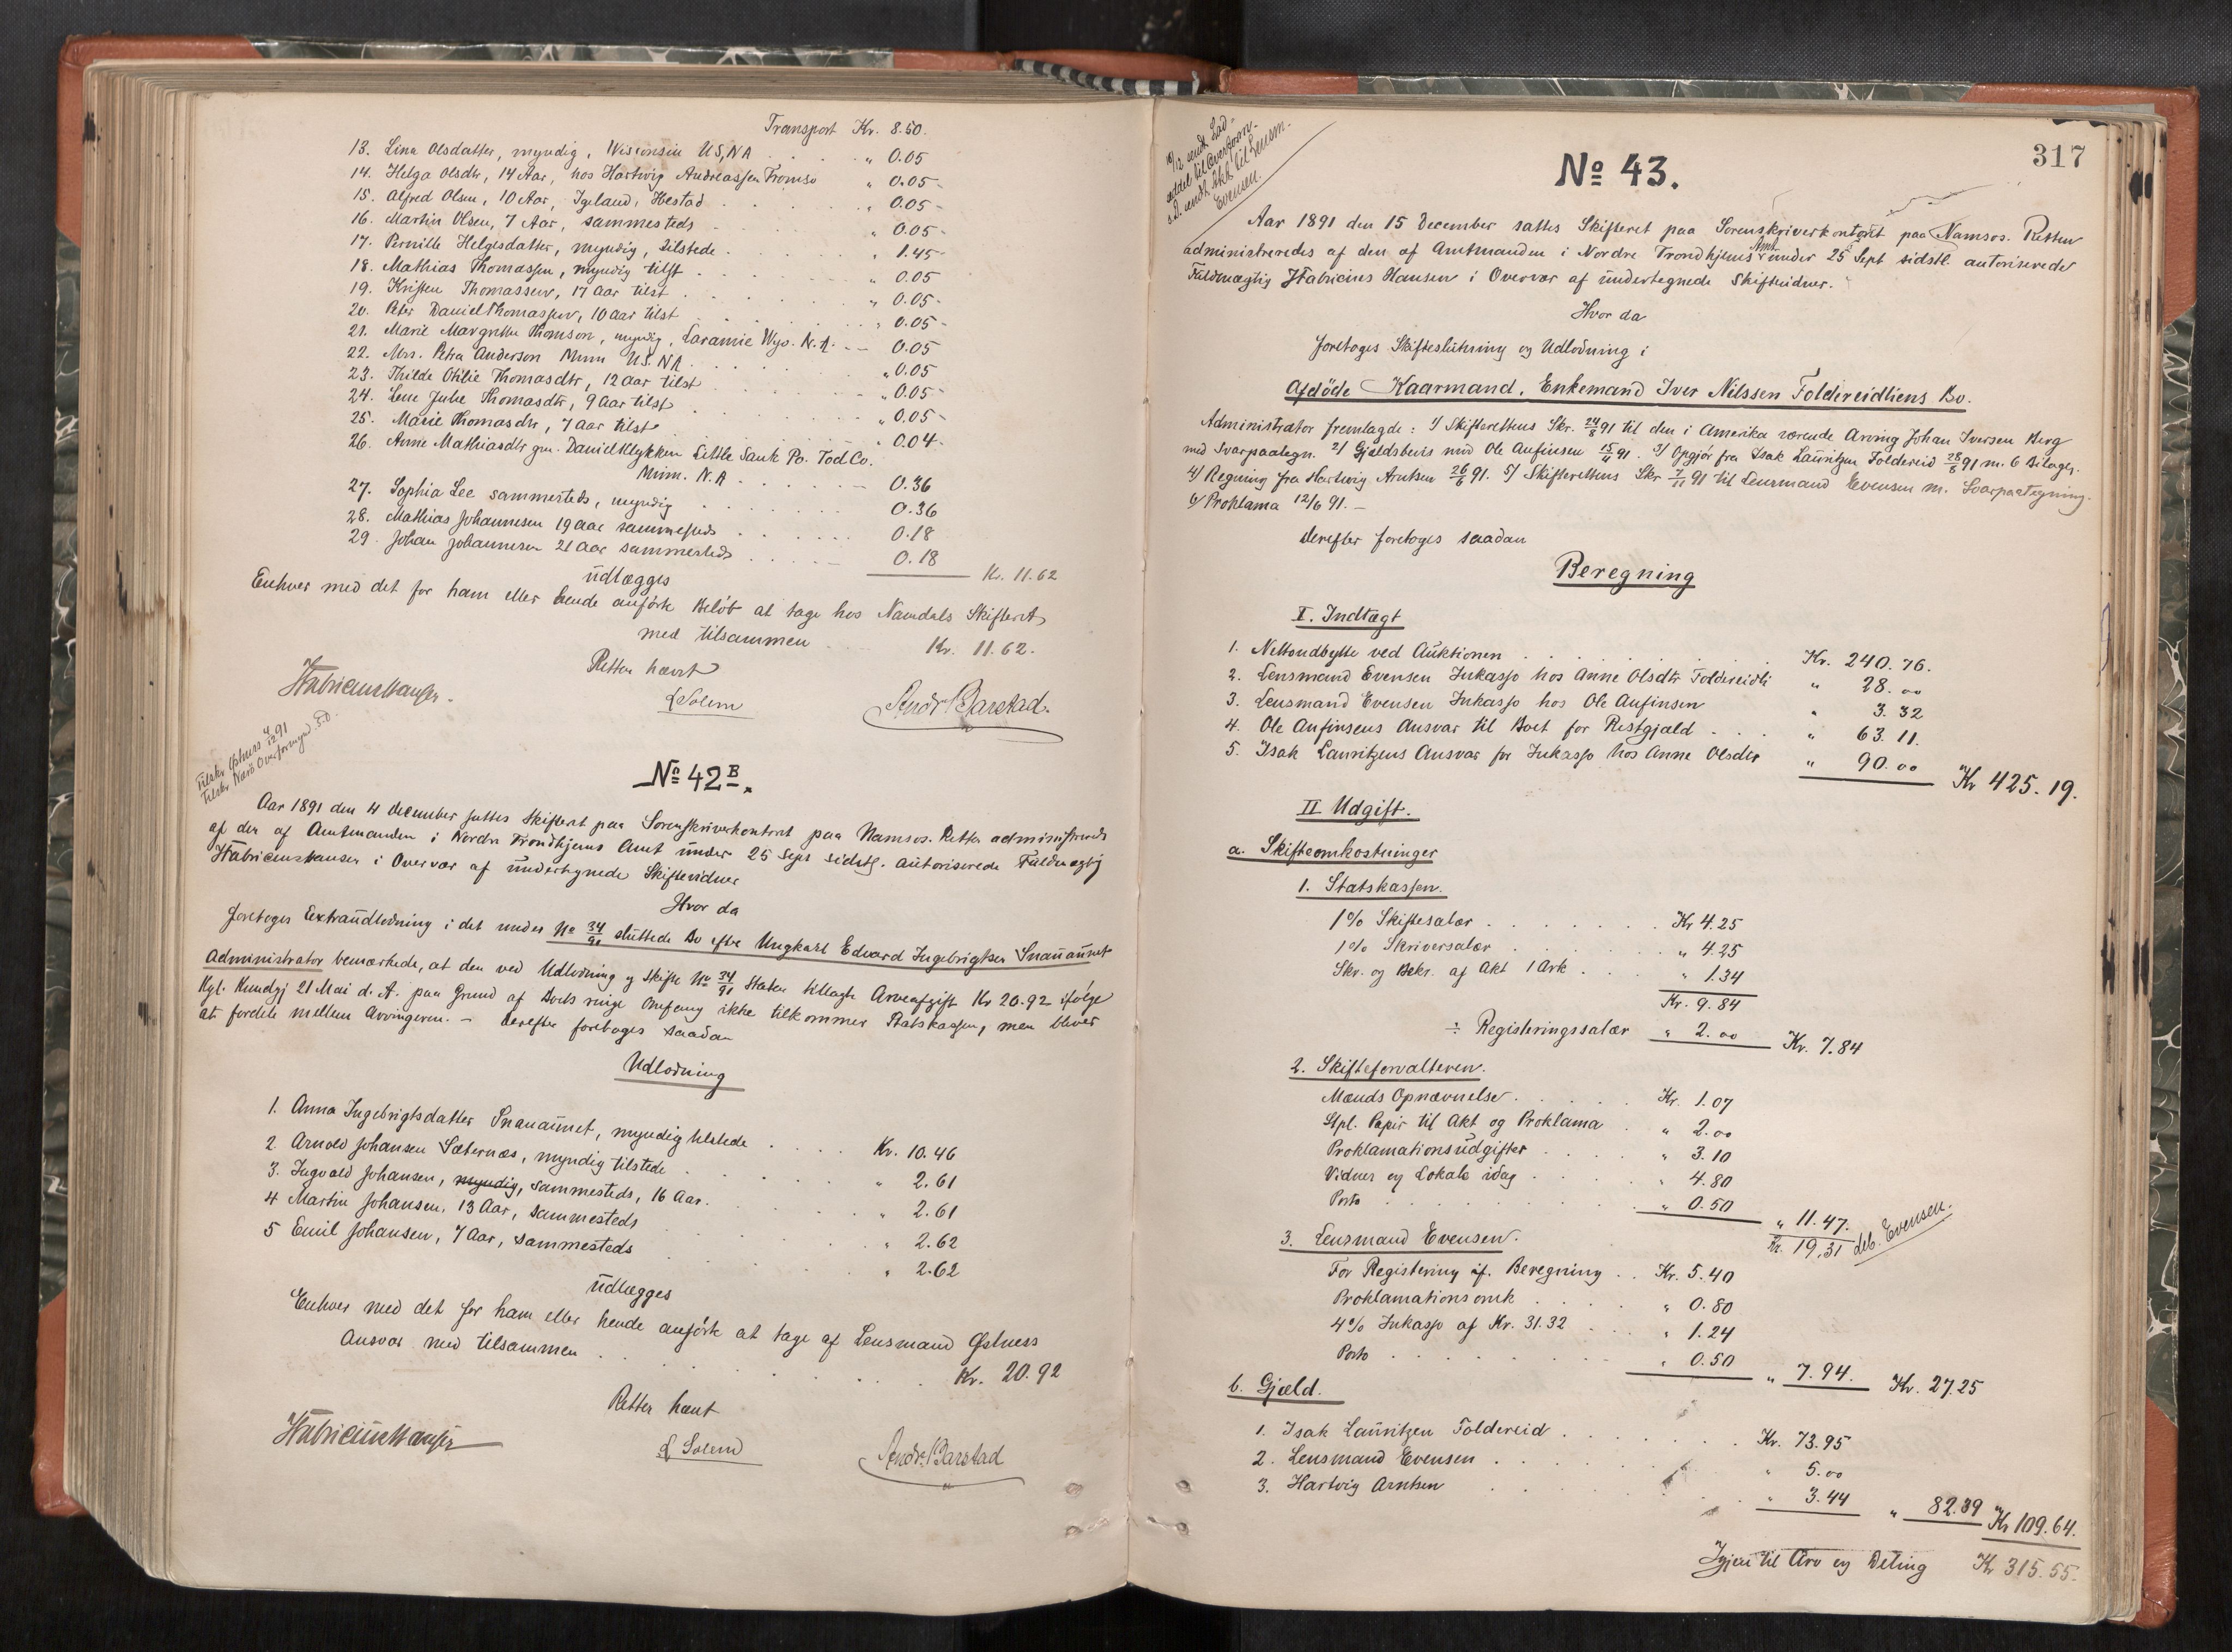 Transport Kr. 8.50.
13. Lina Olsdatter, myndig, Wisconsin US,NA " 0.05
14. Helga Olsdtr, 14 Aar, hos Hartvig Andreassen Tromsø " 0.05
15. Alfred Olsen, 10 Aar, Igeland, Hestad " 0.05
16. Martin Olsen, 7 Aar, sammesteds " 0.05
17. Pernille Helgesdatter, myndig, tilstede " 1.45
18. Mathias Thomassen, myndig tilst " 0.05
19. Kristen Thomassen, 17 Aar tilst " 0.05
20. Peter Daniel Thomassen, 10 aar tilst " 0.05
21. Marie Margrethe Thomson, myndig, Laramie Wyo. N.A. 0.05
22. Mrs. Petra Anderson Minn U.S. NA " 0.05
23. Thilde Otilie Thomasdtr, 12 aar tilst " 0.05
24. Lene Julie Thomasdtr, 9 Aar tilst " 0.05
25. Marie Thomasdtr, 7 aar tilst " 0.04
26. Anne Mathiasdtr gm. Daniel Klykken Little Sauk Po. Tod Co.
Minn. N.A 0.36
27. Sophia Lee sammesteds, myndig 0.36
28. Mathias Johannesen 19 aar sammesteds 0.18
29. Johan Johannesen 21 Aar sammesteds 0.18
Kr. 11.62
udlægges
Enhver med det for ham eller hende anførte Beløb at tage hos Namdals Skifteret
med tilsammen Kr. 11.62.
Retten hævet
HFabriciusHansen.
L Solem
Andr Barstad.
Tilskr Østness 4/12 91
Tilskr Nærø Overformynd. s.D.
No 42 B.
Aar 1891 den 4 December sattes Skifteret paa Sorenskriverkontoret paa Namsos. Retten administreredes
af den af Amtmanden i Nordre Trondhjems Amt under 25 Sept sidstl. autoriserede Fuldmægtig
HFabriciusHansen i Overvær af undertegnede Skiftevidner
Hvor da
foretoges Extraudlodning i det under No 34/91 sluttede Bo efter Ungkarl Edvard Ingebrigtsen Snauaunet
Administrator bemærkede, at den ved Udlodning og Skifte No 34/91 Staten tillagte Arveafgift Kr 20.92 ifølge
Kgl. Kundgj 21 Mai d. A. paa Grund af Boets ringe Omfang ikke tilkommer Statskassen, men bliver
at fordele mellem Arvingerne. – Derefter foretoges saadan
Udlodning
1. Anna Ingebrigtsdatter Snauaunet, myndig tilstede Kr. 10.46
2 Arnold Johansen Sæternæs, myndig tilstede " 2.61
3. Ingvald Johansen, myndig, sammesteds, 16 Aar. " 2.61
4 Martin Johansen, 13 Aar, sammesteds " 2.62
5 Emil Johansen, 7 Aar, sammesteds " 2.62
udlægges
Enhver med det for ham eller hende anførte at tage af Lensmand Østness
Ansvar med tilsammen Kr. 20.92
Retten hævet
HFabriciusHansen
L Solem
Andr. Barstad
317
10/12 sendt Lod-
seddel til Overform.
s.D. sendt Akk til Lensm.
Evensen.
No 43.
Aar 1891 den 15 December sattes Skifteret paa Sorenskriverkontoret paa Namsos. Retten
administreredes af den af Amtmanden i Nordre Trondhjems Amt under 25 Sept sidstl. autoriserede
Fuldmægtig HFabricius Hansen i Overvær af undertegnede Skiftevidner.
Hvor da
foretoges Skifteslutning og Udlodning i
Afdöde Kaarmand, Enkemand Iver Nilssen Foldereidliens Bo.
Administrator fremlagde: 1/ Skifterettens Skr. 24/8 91 til den i Amerika værende Arving Johan Iversen Berg
med Svarpaategn. 2/ Gjeldsbevis med Ole Anfinsen 15/4 91. 3/ Opgjör fra Isak Lauritzen Foldereid 28/8 91 m. 6 Bilager.
4/ Regning fra Hartvig Arntsen 26/6 91. 5/ Skifterettens Skr 7/11 91 til Lensmand Evensen m. Svarpaategning.
6/ Proklama 12/6 91. –
Derefter foretoges saadan
Beregning
I. Indtægt
1. Nettoudbytte ved Auktionen Kr. 240.76.
2. Lensmand Evensen Inkasso hos Anne Olsdtr Foldereidli " 28.00
3. Lensmand Evensen Inkasso hos Ole Anfinsen " 3.32
4. Ole Anfinsens Ansvar til Boet for Restgjæld " 63.11.
5. Isak Lauritzens Ansvar for Inkasso hos Anne Olsdtr " 90.00 Kr 425.19.
II Udgift.
a. Skifteomkostninger
1. Statskassen.
1% Skiftesalær Kr 4.25
1% Skriversalær " 4.25
Skr. og Bekr. af Akt 1 Ark " 1.34
Kr. 9.84
÷ Registeringssalær " 2.00 Kr. 7.84
2. Skifteforvalteren.
Mænds Opnævnelse Kr. 1.07
Stpl. Papir til Akt og Proklama " 2.00
Proklamationsudgifter " 3.10
Vidner og Lokale idag " 4.80
Porto " 0.50 " 11.47.
Kr. 19.31 deb. Evensen.
3. Lensmand Evensen.
For Registering if. Beregning Kr. 5.40
Proklamationsomk " 0.80
4% Inkasso af Kr. 31.32 " 1.24
Porto " 0.50 " 7.94. Kr. 27.25
b. Gjæld.
1. Isak Lauritzen Foldereid Kr. 73.95
2. Lensmand Evensen " 5.00
3. Hartvig Arntsen " 3.44 " 82.39 Kr 109.64.
Igjen til Arv og Deling Kr 315.55.